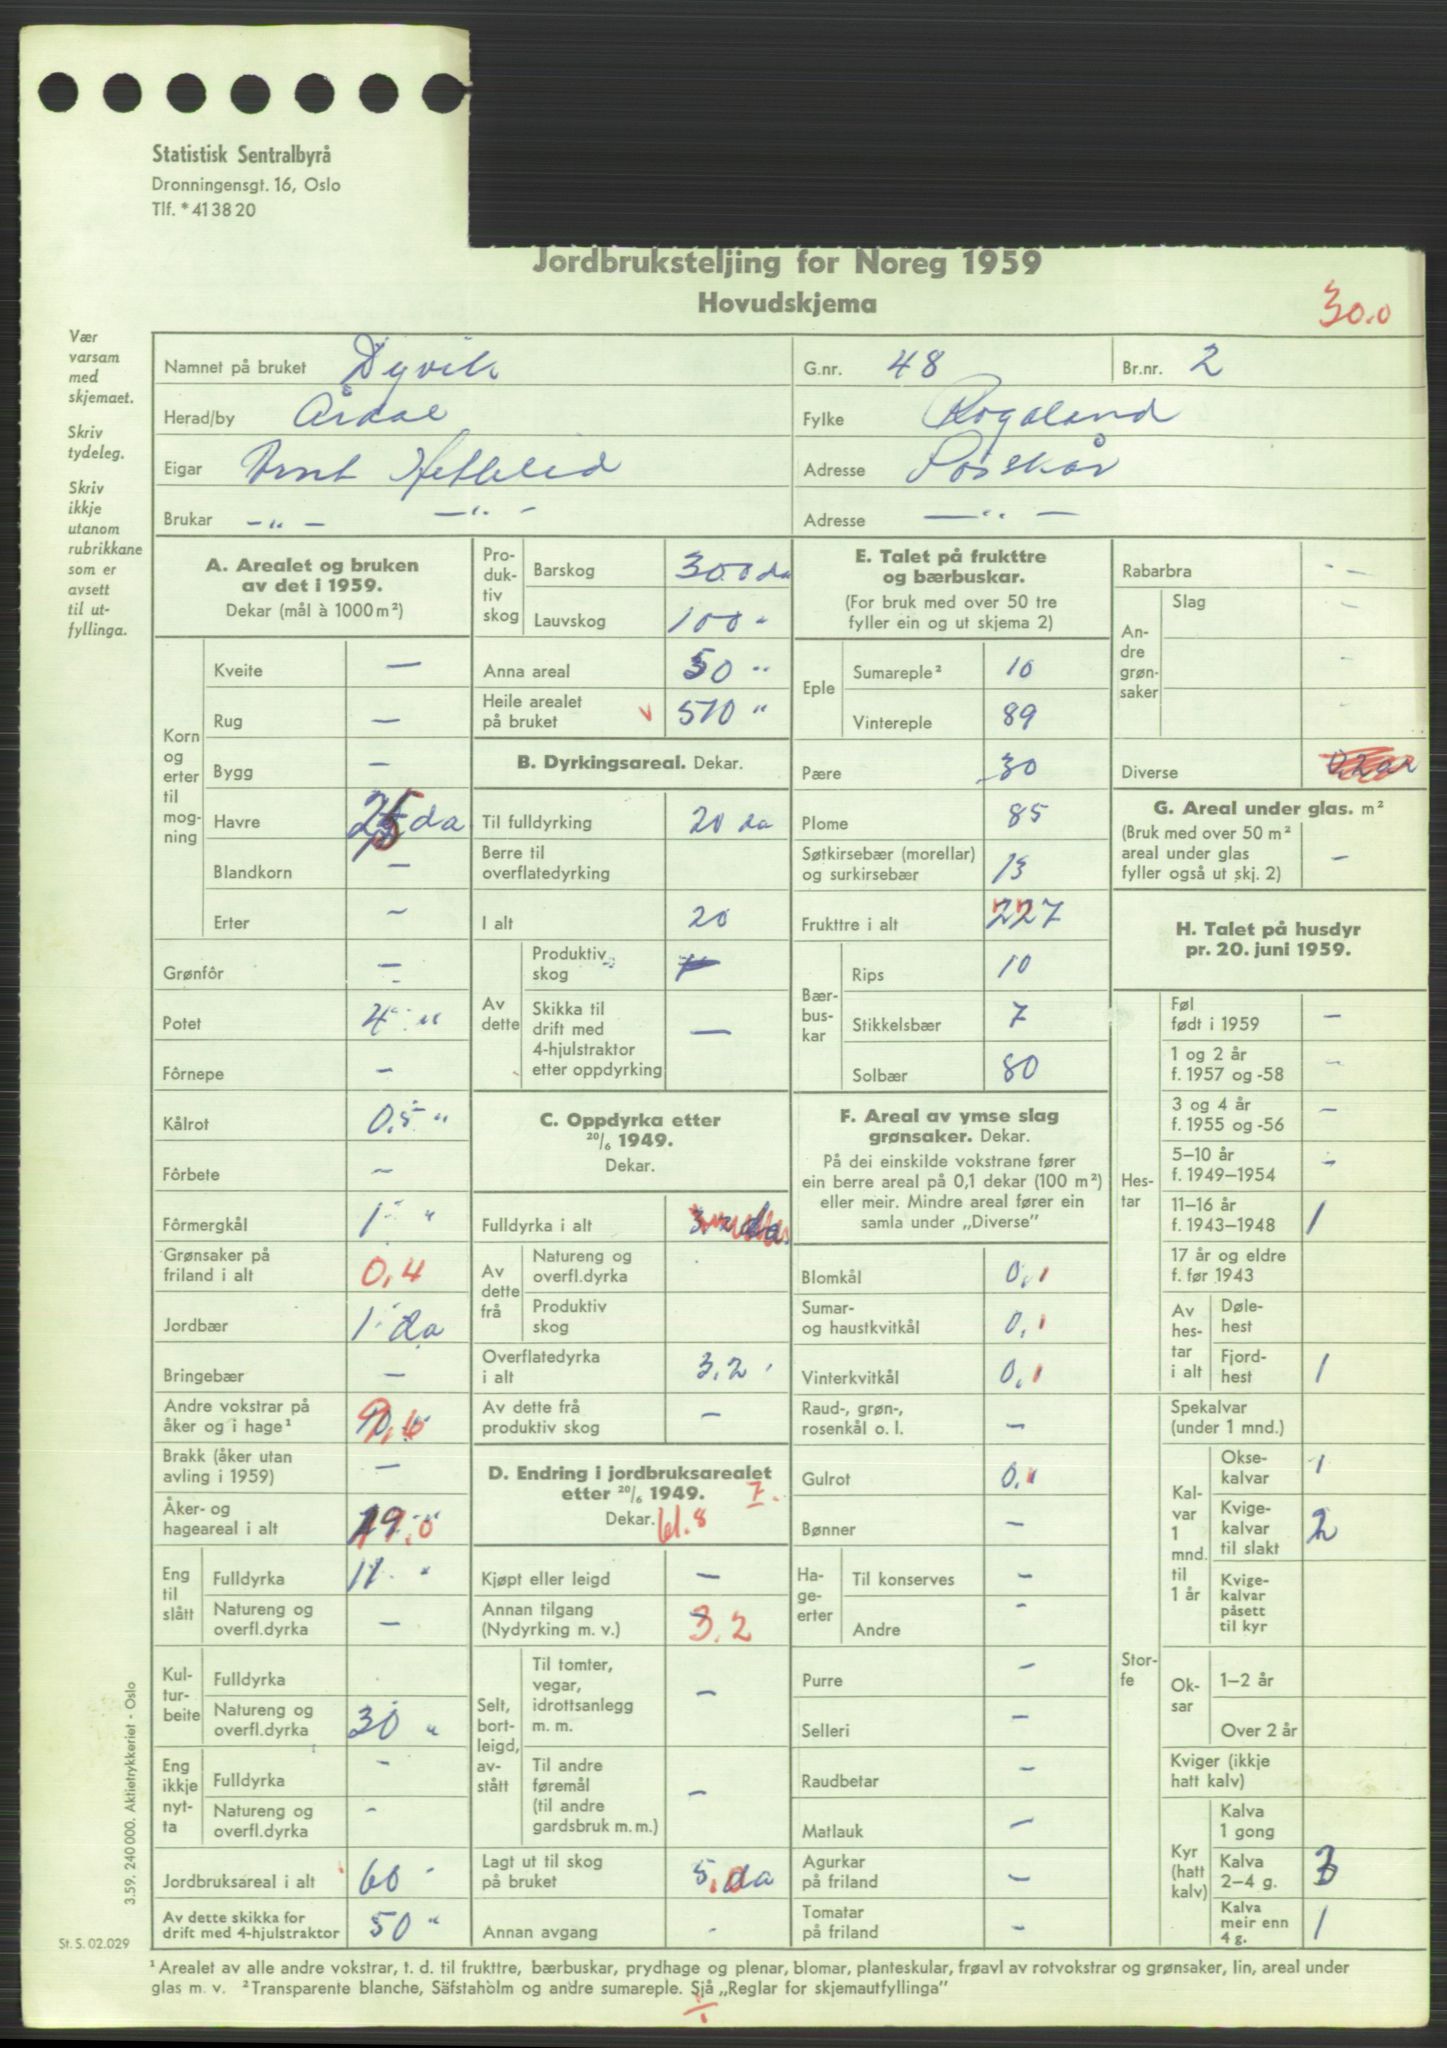 Statistisk Sentralbyrå
Dronningensgt. 16, Oslo
Tlf. * 41 38 20
Jordbruksteljing for Noreg 1959
Hovudskjema
30.0
Vær
varsam
med
skjemaet.
Skriv
tydeleg.
Skriv
ikkje
utanom
rubrikkane
som er
avsett
til ut-
fyllinga.
Namnet på bruket Dyvik G.nr. 48 Br.nr. 2
Herad/by Årdal Fylke Rogaland
Eigar Arnt Hetlelid Adresse
Brukar -"- -"- Adresse -"-
A. Arealet og bruken
av det i 1959.
Dekar (mål à 1000 m²)
Korn og erter til mogning
Kveite —
Rug —
Bygg —
Havre da
Blandkorn —
Erter —
Grønfôr —
Potet 4 "
Fôrnepe —
Kålrot 0,5 "
Fôrbete —
Fôrmergkål 1 "
Grønsaker på
friland i alt 0,4
Jordbær 1 da
Bringebær —
Andre vokstrar på
åker og i hage¹
Brakk (åker utan
avling i 1959) —
Åker- og
hageareal i alt
Eng til slått
Fulldyrka 11 "
Natureng og
overfl.dyrka —
Kul-
tur-
beite
Fulldyrka
Natureng og
overfl.dyrka 30 "
Eng
ikkje
nyt-
ta
Fulldyrka -
Natureng og
overfl.dyrka -
Jordbruksareal i alt 60
Av dette skikka for
drift med 4-hjulstraktor 50 "
Pro-
duk-
tiv
skog
Barskog 300 da
Lauvskog 100 "
Anna areal 50 "
Heile arealet
på bruket 510 "
B. Dyrkingsareal. Dekar.
Til fulldyrking 20 da
Berre til
overflatedyrking
I alt 20
Av
dette
Produktiv
skog
Skikka til
drift med
4-hjulstraktor
etter oppdyrking —
C. Oppdyrka etter
20/6 1949.
Dekar.
Fulldyrka i alt
Av
dette
frå
Natureng og
overfl.dyrka
Produktiv
skog
Overflatedyrka
i alt 3,2
Av dette frå
produktiv skog —
D. Endring i jordbruksarealet
etter 20/6 1949. 7.
Dekar.
Kjøpt eller leigd —
Annan tilgang
(Nydyrking m. v.) 3.2
Selt,
bort-
leigd,
av-
stått
Til tomter,
vegar,
idrottsanlegg
m. m. —
Til andre
føremål
(til andre
gardsbruk m. m.) —
Lagt ut til skog
på bruket 5.0 da
Annan avgang -
E. Talet på frukttre
og bærbuskar.
(For bruk med over 50 tre
fyller ein og ut skjema 2)
Eple
Sumareple² 10
Vintereple 89
Pære 30
Plome 85
Søtkirsebær (morellar)
og surkirsebær 13
Frukttre i alt 227
Bær-
bus-
kar
Rips 10
Stikkelsbær 7
Solbær 80
F. Areal av ymse slag
grønsaker. Dekar.
På dei einskilde vokstrane fører
ein berre areal på 0,1 dekar (100 m²)
eller meir. Mindre areal fører ein
samla under „Diverse"
Blomkål 0,1
Sumar-
og haustkvitkål 0,1
Vinterkvitkål 0,1
Raud-, grøn-,
rosenkål o. l. —
Gulrot 0,1
Bønner —
Ha-
ge-
erter
Til konserves —
Andre -
Purre —
Selleri —
Raudbetar —
Matlauk —
Agurkar
på friland —
Tomatar
på friland —
Rabarbra - -
An-
dre
grøn-
saker
Slag -
-
-
Diverse
G. Areal under glas. m²
(Bruk med over 50 m²
areal under glas
fyller også ut skj. 2) —
H. Talet på husdyr
pr. 20. juni 1959.
Hes-
tar
Føl
født i 1959 —
1 og 2 år
f. 1957 og -58 —
3 og 4 år
f. 1955 og -56 —
5–10 år
f. 1949–1954 —
11–16 år
f. 1943–1948 1
17 år og eldre
f. før 1943
Av
hes-
tar
i alt
Døle-
hest
Fjord-
hest 1
Stor-
fe
Spekalvar
(under 1 mnd.)
Kal-
var
1
mnd.
til
1 år
Okse-
kalvar 1
Kvige-
kalvar
til slakt 2
Kvige-
kalvar
påsett
til kyr
Ok-
sar
1–2 år
Over 2 år
Kviger (ikkje
hatt kalv)
Kyr
(hatt
kalv)
Kalva
1 gong
Kalva
2–4 g. 3
Kalva
meir enn
4 g. 1
3.59. 240 000. Aktietrykkeriet - Oslo
St. S. 02.029
¹ Arealet av alle andre vokstrar, t. d. til frukttre, bærbuskar, prydhage og plenar, blomar, planteskular, frøavl av rotvokstrar og grønsaker, lin, areal under
glas m. v. ² Transparente blanche, Säfstaholm og andre sumareple. Sjå „Reglar for skjemautfyllinga"